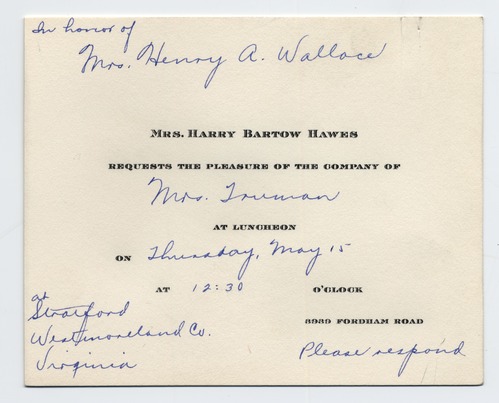 In honor of
Mrs. Henry A. Wallace
MRS. HARRY BARTOW HAWES
REQUESTS THE PLEASURE OF THE COMPANY OF
Mrs. Truman
AT LUNCHEON
ON Thursday, May 15
AT 12:30 O'CLOCK
3939 FORDHAM ROAD
at
Stratford
Westmoreland Co.
Virginia
Please respond